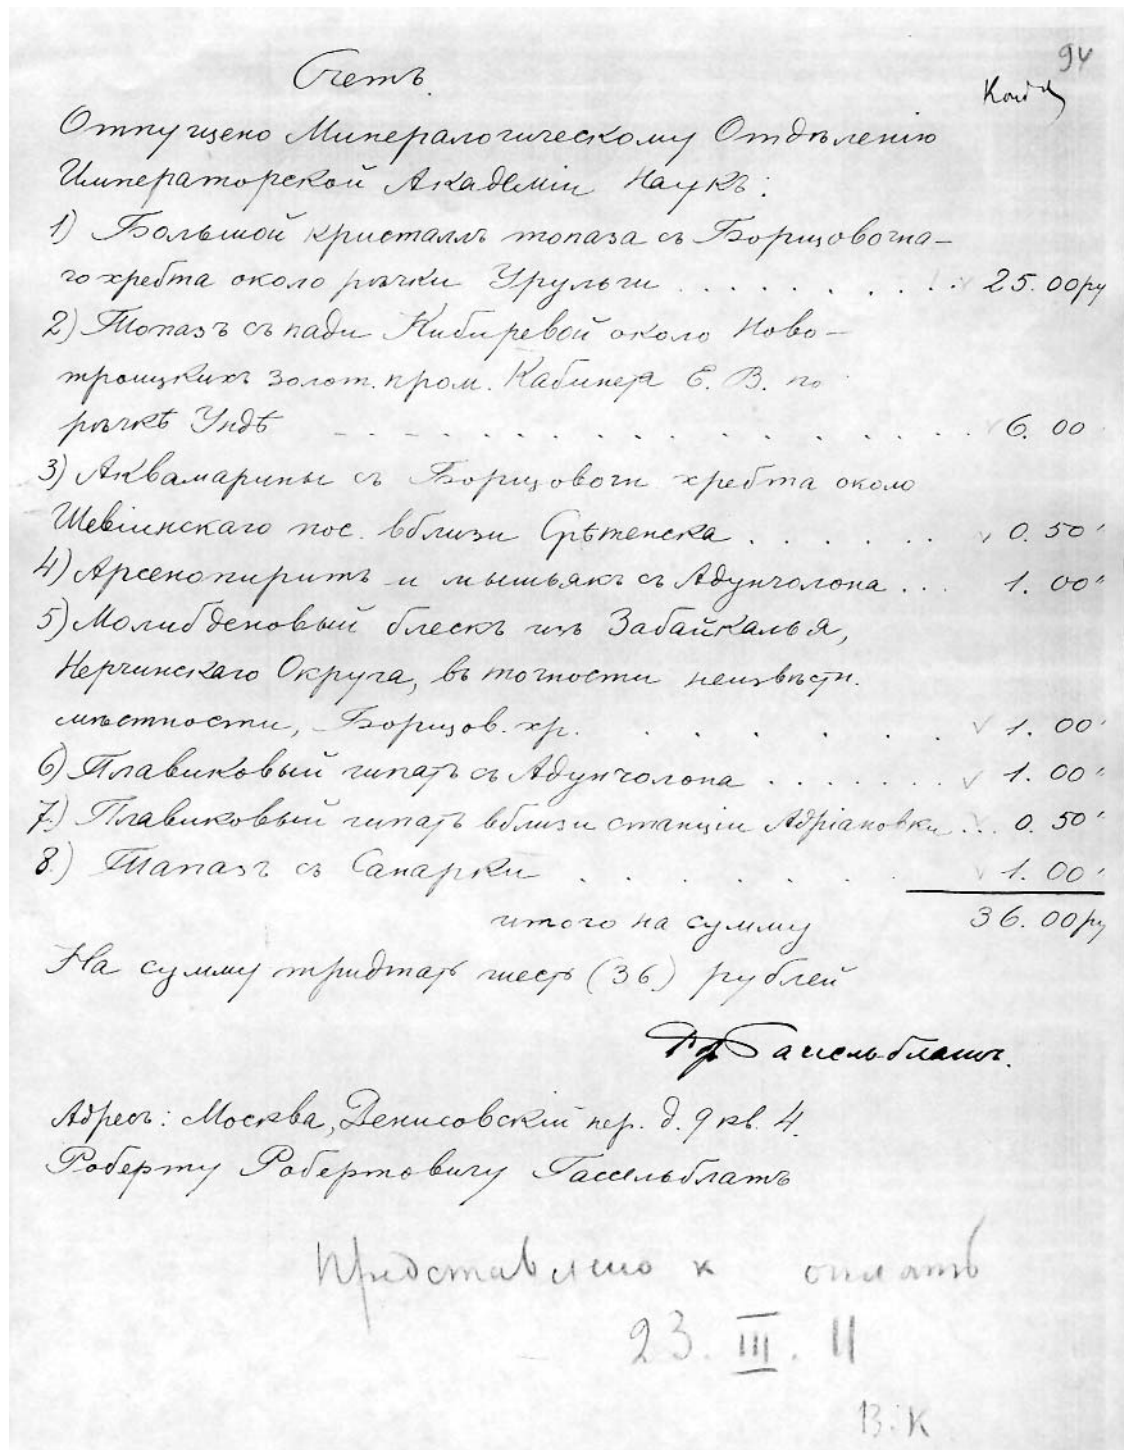 94
Счетъ.
Отпущено Минералогическому Отдѣленію
Императорской Академіи Наукъ:
1) Большой кристаллъ топаза съ Борщовочна-
го хребта около рѣчки Урульги . . . . . . . . . . 25.00ру
2) Топазъ съ пади Кибиревой около Ново-
троицкихъ золот. пром. Кабинета Е. В. по
рѣчкѣ Ундѣ . . . . . . . . . . . . . . . . 6.00
3) Аквамарины съ Борщовочн хребта около
Шевіинскаго пос. вблизи Срѣтенска . . . . . . 0.50"
4) Арсенопиритъ и мышьякъ съ Адунчолона . . . 1.00"
5) Молибденовый блескъ изъ Забайкалья,
Нерчинскаго Округа, въ точности неизвѣстн.
мѣстности, Борщов. хр. . . . . . . 1.00"
6) Плавиковый шпатъ съ Адунчолона . . . . . . . 1.00"
7.) Плавиковый шпатъ вблизи станціи Адріановки . . . 0.50"
8.) Тапазъ съ Санарки . . . . . . . 1.00"
итого на сумму 36.00ру
На сумму тридтать шесть (36) рублей
Гассельблатъ.
Адресъ: Москва, Денисовскій пер. д. 9 кв. 4.
Роберту Робертовичу Гассельблатъ
Представлено к оплатѣ
23. III. 11
В. К